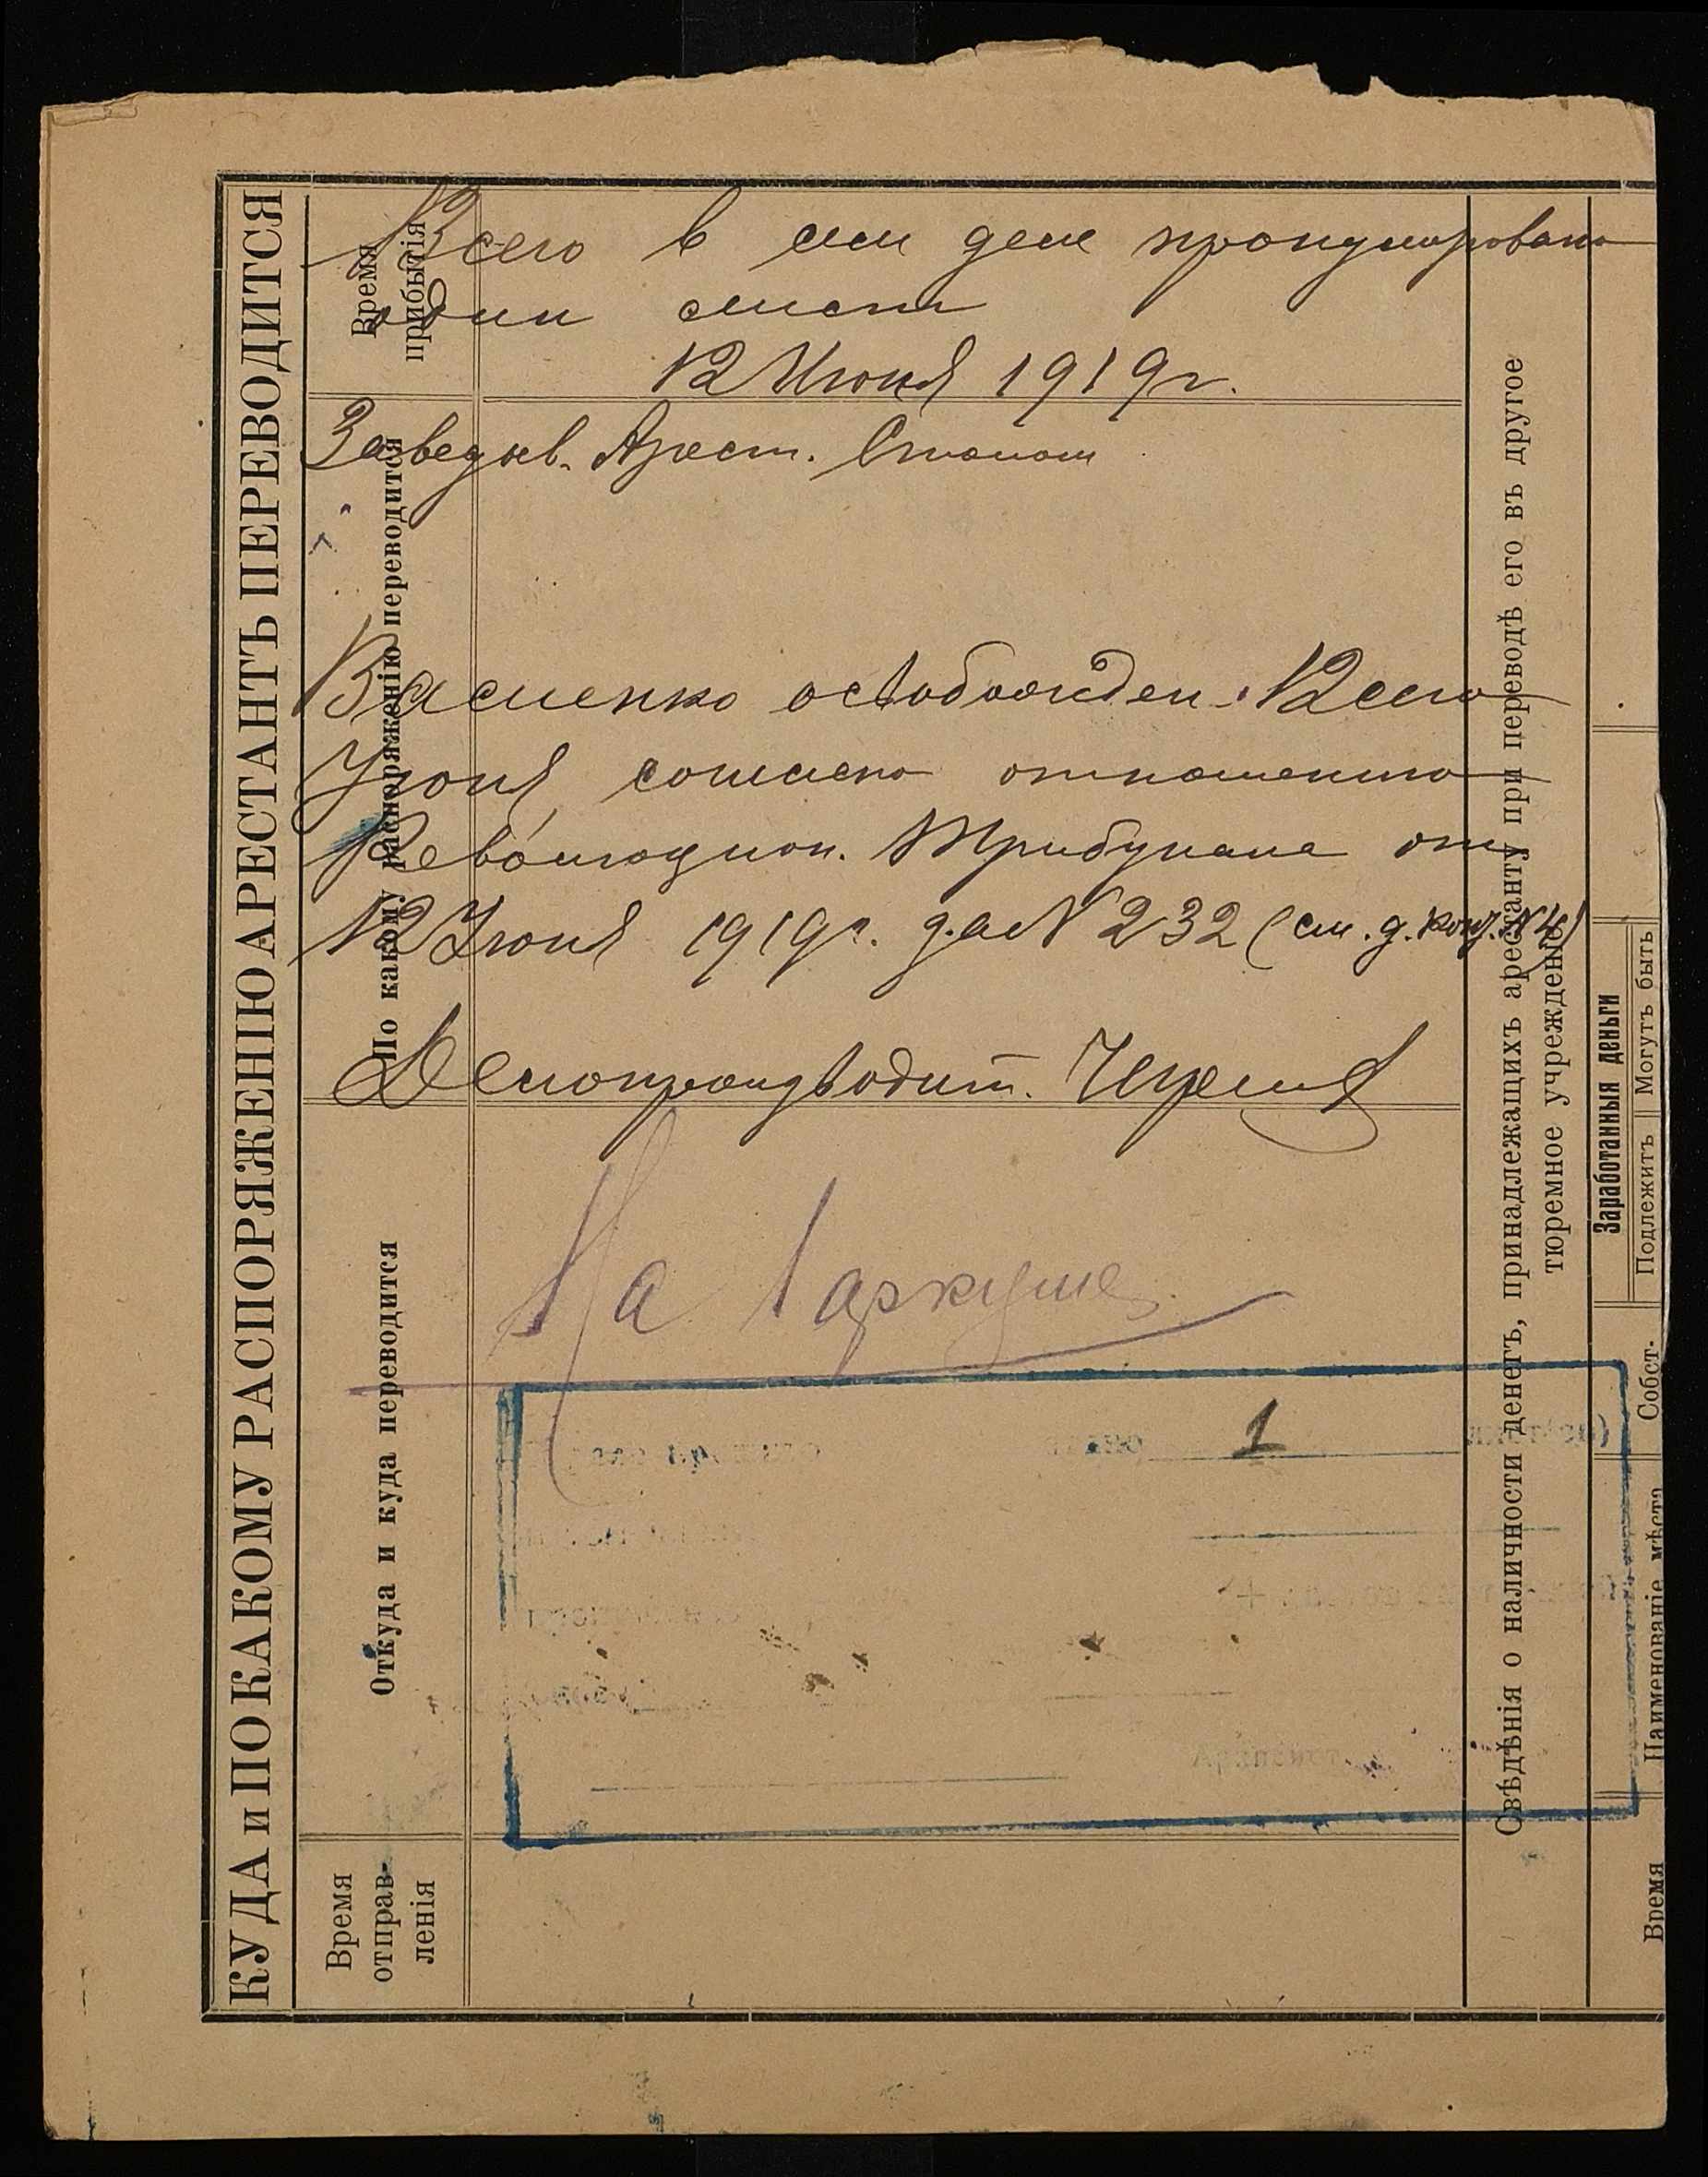 КУДА и ПО КАКОМУ РАСПОРЯЖЕНІЮ АРЕСТАНТЪ ПЕРЕВОДИТСЯ
Время прибытія
По какому распоряженію переводится
Откуда и куда переводится
Время отправ-
ленія
Всего в сем деле пронумеровано
один лист
12 Июня 1919 г.
Заведыв. Арест. Столом
освобожден 12 сего
Июня согласно отношению
Революцион. Трибунала от
12 Июня 1919 г. за № 232 (см. д. № 4)
Делопроизводит.
На 1 аркуше
1
Свѣдѣнія о наличности денегъ, принадлежащихъ арестанту при переводѣ его въ другое
тюремное учрежденіе
Заработанныя деньги
Подлежитъ
Могутъ быть
Собст-
Наименованіе мѣста
Время